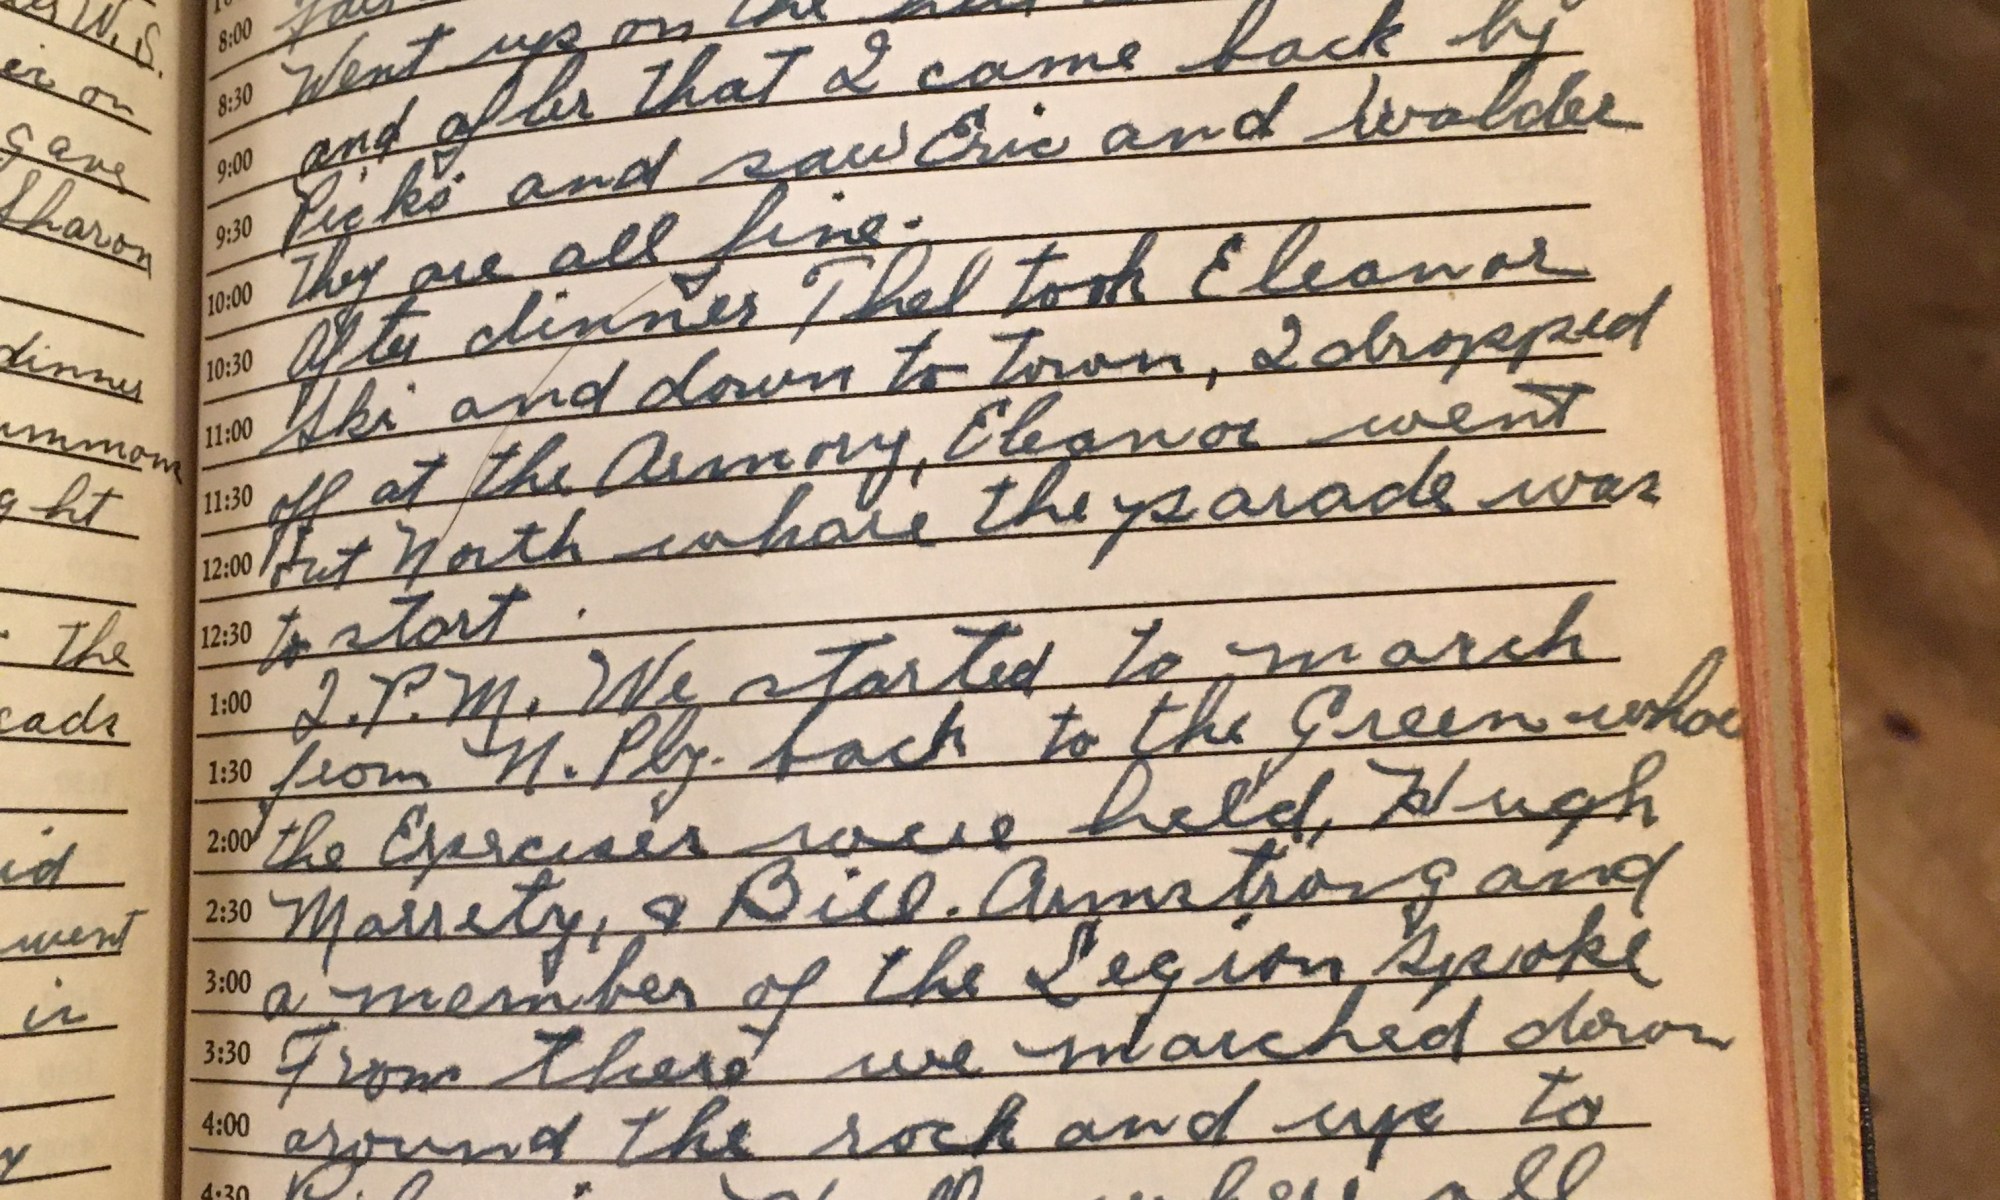 W. S.
er on
gave
Sharon
dinner
ght
the
cads
id
went
in
8:00
8:30 Went up on the
9:00 and after that I came back by
9:30 Picks and saw Eric and Waldee
10:00 they are all fine.
10:30 After dinner Thel took Eleanor
11:00 Ski and down to town, I dropped
11:30 off at the Armory, Eleanor went
12:00 out North whare the parade was
12:30 to start.
1:00 2.P.M. We started to march
1:30 from N. Ply. back to the Green whae
2:00 the Exercises were held, Hugh
2:30 Marrety, & Bill. Armstrong and
3:00 a member of the Legion spoke
3:30 From there we marched down
4:00 around the rock and up to
4:30 all